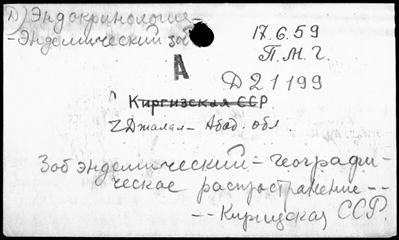 Д) Эндокринология -
- Эндемический зоб
17.6.59
П.М.Г.
А
Д21199
Киргизская ССР
2 Джалал-Абад. обл.
Зоб эндемический - географи-
ческое распространение --
-- Киргизская ССР.